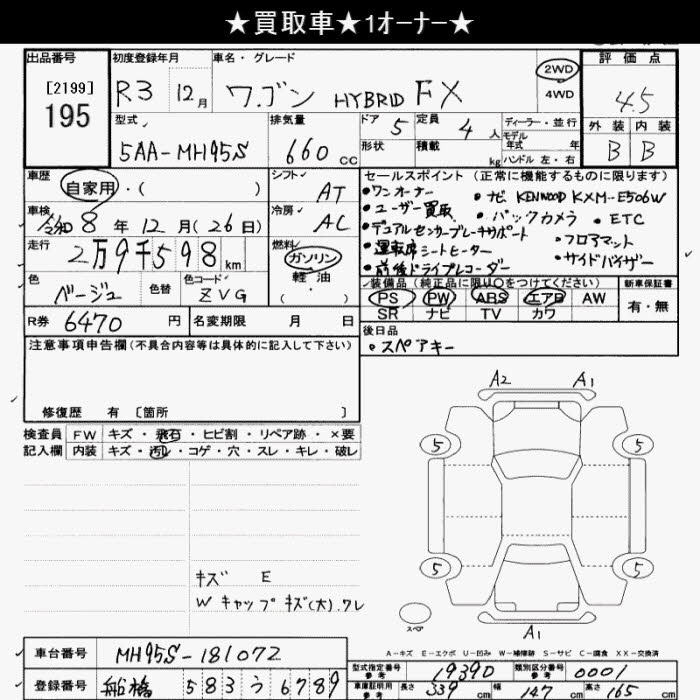 ★買取車★1オーナー★
出品番号 初度登録年月 車名・グレード 評価点
[2199]
195
R3 12月 ワゴン HYBRID FX 2WD 4WD 4.5
型式 排気量 ドア 定員 ディーラー・並行 外装 内装
5AA-MH95S 660cc 5 4人 モデル年式 年 B B
形状 積載 kg ハンドル 左・右
車歴 シフト セールスポイント (正常に機能するものに限ります)
自家用・( ) AT
・ワンオーナー ・ナビ KENWOOD KXM-E506W
・ユーザー買取 ・バックカメラ ・ETC
・デュアルセンサーブレーキサポート ・フロアマット
・運転席シートヒーター ・サイドバイザー
・前後ドライブレコーダー
車検 冷房
令和8年12月(26日) AC
走行 燃料
2万9千598km ガソリン
軽油
・
( )
色 色替 色コード
ベージュ ZVG
装備品 (純正品に限り○をつけてください) 新車保証書
PS PW ABS エアB AW 有・無
SR ナビ TV カワ
R券 6470円 名変期限 月 日
後日品
・スペアキー
注意事項申告欄(不具合内容等は具体的に記入して下さい)
修復歴 有 [箇所 ]
検査員 FW キズ・飛石・ヒビ割・リペア跡・×要
記入欄 内装 キズ・汚レ・コゲ・穴・スレ・キレ・破レ
A2 A1
5 5
5 5
キズ E
W キャップキズ(大).ワレ
スペア
A1
A-キズ E-エクボ U-凹み W-補修跡 S-サビ C-腐食 XX-交換済
車台番号 MH95S-181072
型式指定番号 参考 19390 類別区分番号 参考 0001
登録番号 船橋 583 う 6789
車庫証明用 参考 長さ 339cm 幅 147cm 高さ 165cm